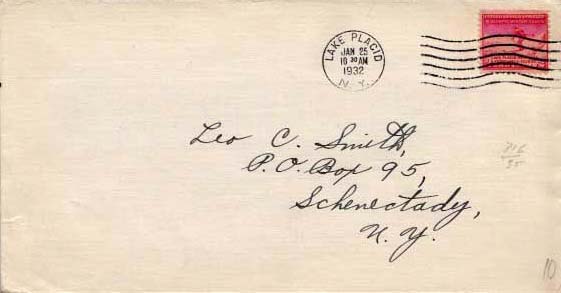 LAKE PLACID
JAN 25
10 30 AM
1932
N.Y.
Leo C. Smith,
P.O. Box 95,
Schenectady,
N.Y.
716
35
10